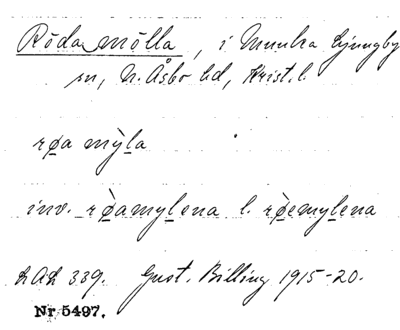 Röda mölla, i Munka Ljungby
sn, N. Åsbo hd, Krist. l.
rø̱a mỳḻa
inv. rø̱̀amyḻena l. rø̱̀emyḻena
LAL 339. Gust. Billing 1915-20.
Nr 5497.